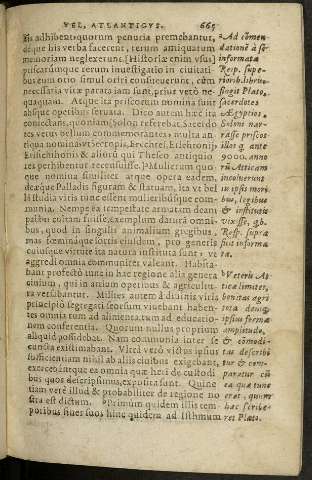 VEL, ATLANTICVS. 665
his adhibent: quorum penuria premebantur,
de que his verba facerent, rerum antiquarum
memoriam neglexerunt. [Historiæ enim vsus]
priscarumque rerum inuestigatio in ciuitati-
bus cum otio simul oriri consueuerunt, cùm
necessaria vitæ parata iam sunt, prius verò ne-
quaquam. Atque ita priscorum nomina sunt
absque operibus seruata. Dico autem hæc ita
coniectans, quoniam Solon referebat, Sacerdo
tes vetus bellum commemorantes, multa an-
tiqua nomina vt Cecropis, Erechtei, Erichthonij
Erisichthonis & aliorū qui Theseo antiquio
res perhibentur recensuisse. Mulierum quo-
que nomina similiter atque opera eadem,
deæque Palladis figuram & statuam, ita vt bel
li studia viris tunc essent mulieribusque com-
munia. Nempe ea tempestate armatam deam
patrio cultam fuisse, exemplum datum omni-
bus, quod in singulis animalium gregibus,
mas fœminaque sortis eiusdem, pro generis
cuiusque virtute ita natura instituta sunt, vt
aggredi omnia communiter valeant. Habita-
bant profectò tunc in hac regione alia genera
ciuium, qui in artium operibus & agricultu-
ra versabantur. Milites autem à diuinis viris
principio segregati seorsum viuebant haben-
tes omnia tum ad alimenta, tum ad educatio-
nem conferentia. Quorum nullus proprium
aliquid possidebat. Nam communia inter se
cuncta existimabant. Vltra verò victus ipsius
sufficientiam nihil ab aliis ciuibus exigebant,
exercebantque ea omnia quæ heri de custodi
bus quos descripsimus, exposita sunt. Quine
tiam verè illud & probabiliter de regione no
stra est dictum. Primùm quidem illis tem-
poribus fines suos, hinc quidem ad Isthmum
Ad comen
datione à se
informatæ
Reip. supe-
rioribus libris
fingit Plato,
sacerdotes
Ægyptios
Soloni nar-
rasse priscos
illos q ante
9000. anno
rū Atticam
incoluerunt
in ipsis mori
bus, legibus
& institutis
vixisse, qb.
Resp. supra
fuit informa
ta.
Veteris At
ticæ limites,
bonitas agri
tota denique
ipsius formæ
amplitudo,
& commodi-
tas describi
tur & com-
paratur cū
ea quæ tunc
erat, quum
hac scribe-
ret Plato.